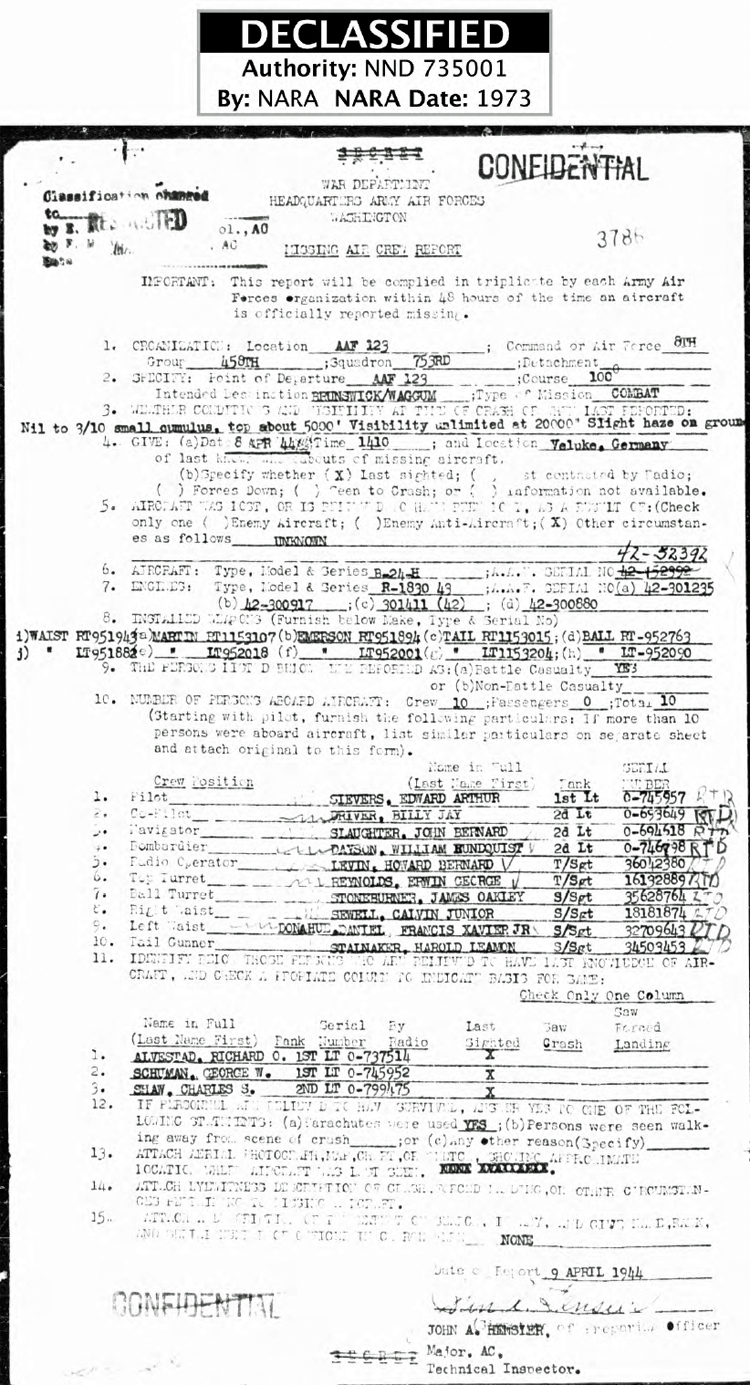 DECLASSIFIED
Authority: NND 735001
By: NARA NARA Date: 1973
SECRET
CONFIDENTIAL
WAR DEPARTMENT
HEADQUARTERS ARMY AIR FORCES
WASHINGTON
Classification changed
to
by E. RESTRICTED ol., AC
by F. M , AC
Date
3786
MISSING AIR CREW REPORT
IMPORTANT: This report will be complied in triplicate by each Army Air
Forces organization within 48 hours of the time an aircraft
is officially reported missing.
1. ORGANIZATION: Location AAF 123 ; Command or Air Force 8TH
Group 458TH ;Squadron 753RD ;Detachment
2. SPECIFY: Point of Departure AAF 123 ;Course 100°
Intended Destination BRUNSWICK/WAGGUM ;Type of Mission COMBAT
3. WEATHER CONDITIONS AND VISIBILITY AT TIME OF CRASH OR WHEN LAST REPORTED:
Nil to 3/10 small cumulus, top about 5000' Visibility unlimited at 20000" Slight haze on groun
4. GIVE: (a)Date 8 APR 44 ;Time 1410 ; and Location Veluke, Germany
of last known whereabouts of missing aircraft.
(b)Specify whether (X) Last sighted; ( ) st contacted by Radio;
( ) Forces Down; ( ) Seen to Crash; or ( ) Information not available.
5. AIRCRAFT WAS LOST, OR IS BELIEVED TO HAVE BEEN LOST, AS A RESULT OF:(Check
only one ( )Enemy Aircraft; ( )Enemy Anti-Aircraft;(X) Other circumstan-
es as follows UNKNOWN
42-52392
6. AIRCRAFT: Type, Model & Series B-24-H ;A.A.F. SERIAL NO 42-152992
7. ENGINES: Type, Model & Series R-1830 43 ;A.A.F. SERIAL NO(a) 42-301235
(b) 42-300917 ;(c) 301411 (42) ; (d) 42-300880
8. INSTALLED WEAPONS (Furnish below Make, Type & Serial No)
i)WAIST RT951943(a)MARTIN RT1153107(b)EMERSON RT951894(c)TAIL RT1153015;(d)BALL RT-952763
j) " LT951882(e) " LT952018 (f) " LT952001(g) " LT1153204;(h) " LT-952090
9. THE PERSONS LISTED BELOW WERE REPORTED AS:(a)Battle Casualty YES
or (b)Non-Battle Casualty
10. NUMBER OF PERSONS ABOARD AIRCRAFT: Crew 10 ;Passengers 0 ;Total 10
(Starting with pilot, furnish the following particulars: If more than 10
persons were aboard aircraft, list similar particulars on separate sheet
and attach original to this form).
Name in Full SERIAL
Crew Position (Last Name First) Rank NUMBER
1. Pilot SIEVERS, EDWARD ARTHUR 1st Lt 0-745957 RTD
2. Co-Pilot DRIVER, BILLY JAY 2d Lt 0-693649 RTD
3. Navigator SLAUGHTER, JOHN BERNARD 2d Lt 0-694518 RTD
4. Bombardier DAYSON, WILLIAM RUNDQUIST 2d Lt 0-746798 RTD
5. Radio Operator LEVIN, HOWARD BERNARD T/Sgt 36042380 RTD
6. Top Turret REYNOLDS, ERWIN GEORGE T/Sgt 16192889 RTD
7. Ball Turret STONEBURNER, JAMES OAKLEY S/Sgt 35628764 RTD
8. Right Waist SEWELL, CALVIN JUNIOR S/Sgt 18181874 RTD
9. Left Waist DONAHUE, DANIEL FRANCIS XAVIER JR S/Sgt 32709643 RTD
10. Tail Gunner STALNAKER, HAROLD LEAMON S/Sgt 34503453 RTD
11. IDENTIFY BELOW THOSE PERSONS WHO ARE BELIEVED TO HAVE LAST KNOWLEDGE OF AIR-
CRAFT, AND CHECK APPROPIATE COLUMN TO INDICATE BASIS FOR SAME:
Check Only One Column
Saw
Name in Full Serial By Last Saw Forced
(Last Name First) Rank Number Radio Sighted Crash Landing
1. ALVESTAD, RICHARD O. 1ST LT 0-737514 X
2. SCHUMAN, GEORGE W. 1ST LT 0-745952 X
3. SHAW, CHARLES S. 2ND LT 0-799475 X
12. IF PERSONNEL ARE BELIEVED TO HAVE SURVIVED, ANSWER YES TO ONE OF THE FOL-
LOWING STATEMENTS: (a)Parachutes were used YES ;(b)Persons were seen walk-
ing away from scene of crash ;or (c)Any other reason(Specify)
13. ATTACH AERIAL PHOTOGRAPH,MAP,CHART,OR SKETCH, SHOWING APPROXIMATE
LOCATION WHERE AIRCRAFT WAS LAST SEEN. NONE AVAILABLE.
14. ATTACH EYEWITNESS DESCRIPTION OF CRASH,FORCED LANDING,OR OTHER CIRCUMSTAN-
CES PERTAINING TO MISSING AIRCRAFT.
15. ATTACH A DESCRIPTION OF THE EXTENT OF SEARCH, IF ANY, AND GIVE NAME,RANK,
AND SERIAL NUMBER OF OFFICER IN CHARGE NONE
Date of Report 9 APRIL 1944
JOHN A. HENSLER, of Preparing Officer
CONFIDENTIAL
Major, AC,
SECRET
Technical Inspector.